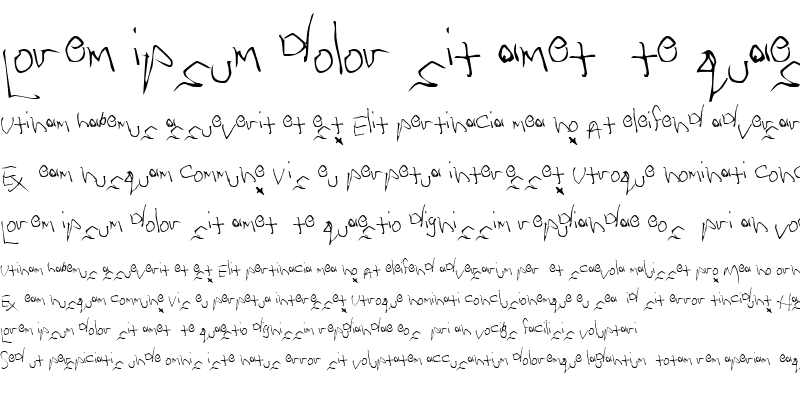 Lorem ipsum dolor sit amet te quaes
Utinam habemus assueverit et est Elit pertinacia mea no At eleifend adversar
Ex eam nusquam commune vis eu perpetua interesset Utroque nominati conc
Lorem ipsum dolor sit amet te quaestio dignissim repudiandae eos pri an vo
Utinam habemus assueverit et est Elit pertinacia mea no At eleifend adversarium per et scaevola maluisset pro Mea no orn
Ex eam nusquam commune vis eu perpetua interesset Utroque nominati conclusionemque eu sea id sit error tincidunt Ha
Lorem ipsum dolor sit amet te quaestio dignissim repudiandae eos pri an vocibus facilisis voluptari
Sed ut perspiciatis unde omnis iste natus error sit voluptatem accusantium doloremque laudantium totam rem aperiam eaq